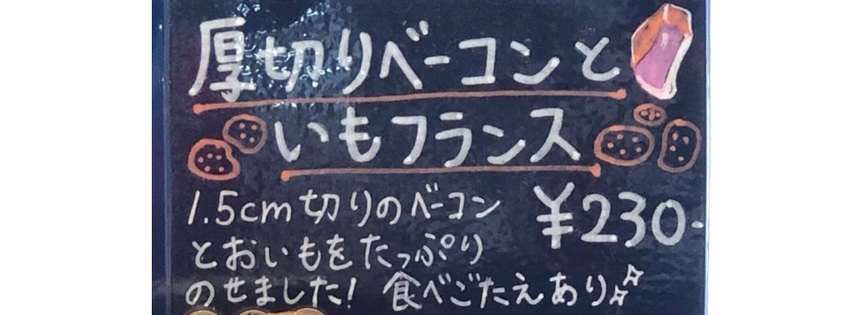 厚切りベーコンと
いもフランス
1.5cm切りのベーコン
とおいもをたっぷり
のせました! 食べごたえあり
¥230-